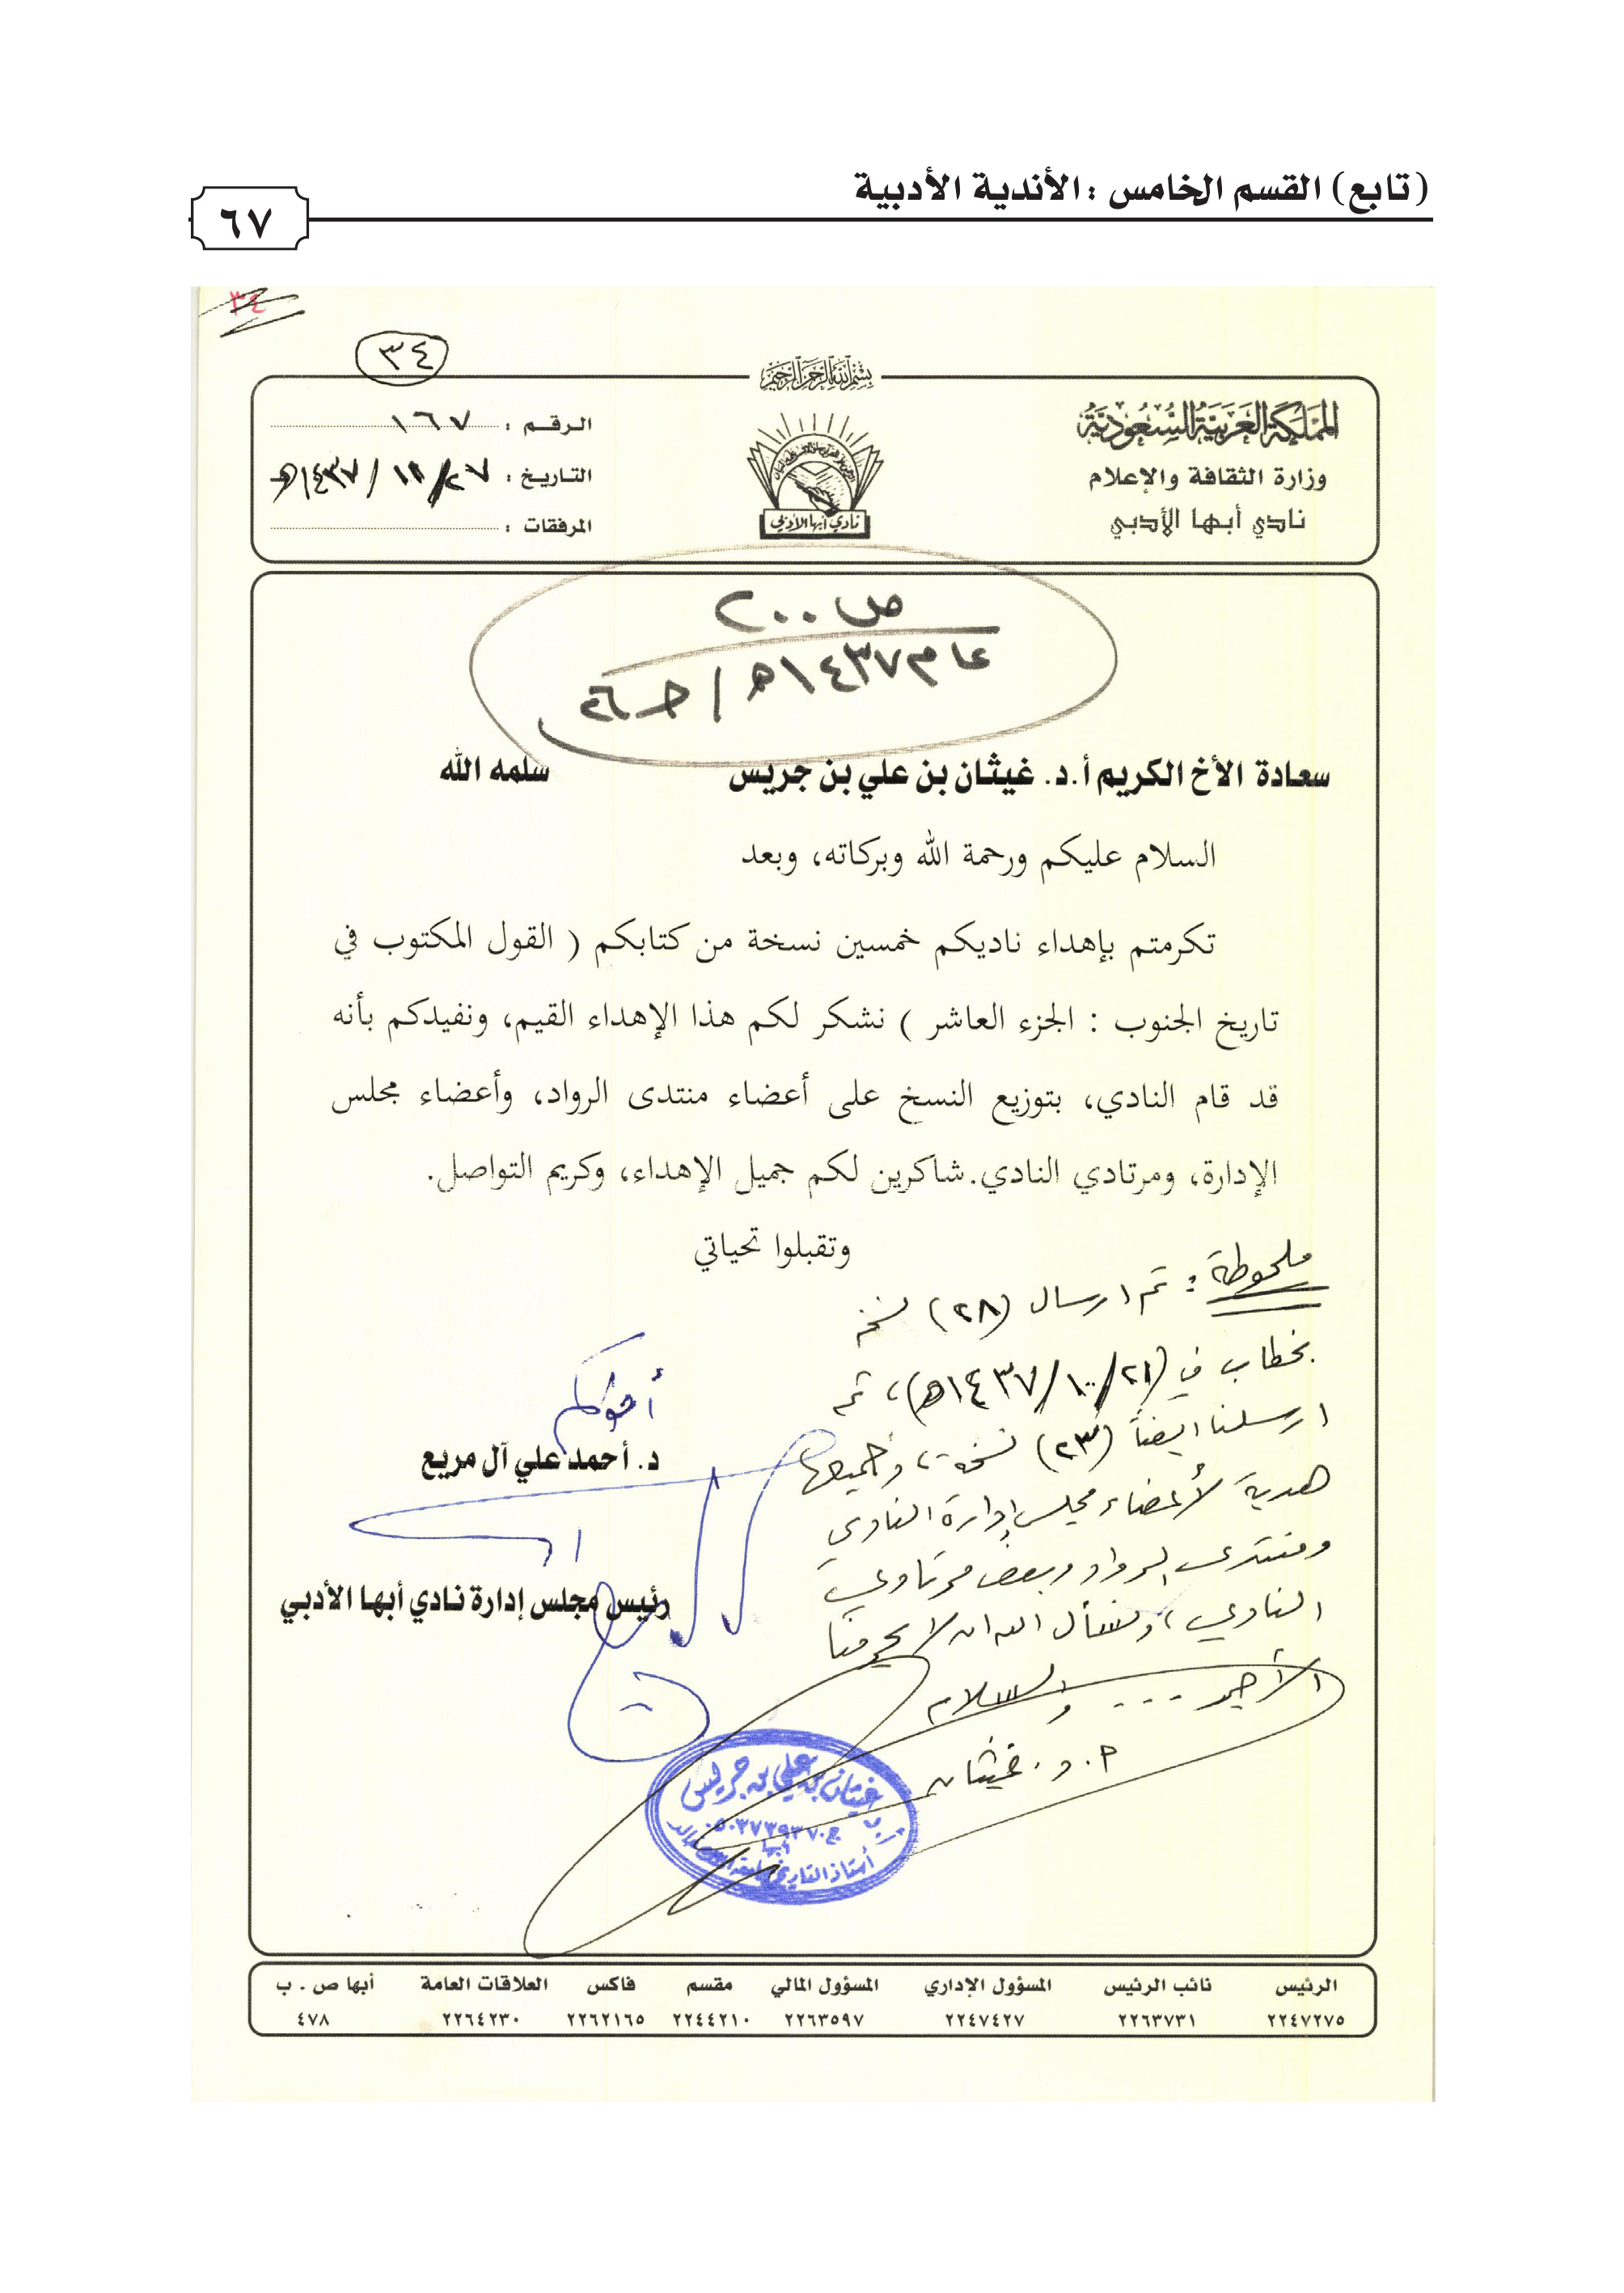 (تابع) القسم الخامس : الأندية الأدبية
٦٧
٣٤
٣٤
بسم الله الرحمن الرحيم
المملكة العربية السعودية
وزارة الثقافة والإعلام
نادي أبها الأدبي
نادي أبها الأدبي
الرقم : ١٦٧
التاريخ : ٢٧/ ١١ /١٤٣٧هـ
المرفقات :
ص ٢٠٠
عام ١٤٣٧هـ /
سعادة الأخ الكريم أ.د. غيثان بن علي بن جريس سلمه الله
السلام عليكم ورحمة الله وبركاته، وبعد
تكرمتم بإهداء ناديكم خمسين نسخة من كتابكم ( القول المكتوب في
تاريخ الجنوب : الجزء العاشر ) نشكر لكم هذا الإهداء القيم، ونفيدكم بأنه
قد قام النادي، بتوزيع النسخ على أعضاء منتدى الرواد، وأعضاء مجلس
الإدارة، ومرتادي النادي.شاكرين لكم جميل الإهداء، وكريم التواصل.
وتقبلوا تحياتي
أخوكم
د. أحمد علي آل مريع
رئيس مجلس إدارة نادي أبها الأدبي
ملحوظة : تم ارسال (٢٨) نسخة
بخطاب في (٢١/١٠/١٤٣٧هـ)، ثم
ارسلنا ايضاً (٢٣) نسخة، وجميعها
هدية لأعضاء مجلس إدارة النادي
ومنتدى الرواد وبعض مرتادي
النادي، ونسأل الله ان لا يحرمنا
الأجر ... والسلام
أ . د . غيثان
غيثان بن علي بن جريس
أبها
أستاذ التاريخ
الرئيس نائب الرئيس المسؤول الإداري المسؤول المالي مقسم فاكس العلاقات العامة أبها ص . ب
٢٢٤٧٢٧٥ ٢٢٦٣٧٣١ ٢٢٤٧٤٢٧ ٢٢٦٣٥٩٧ ٢٢٤٤٢١٠ ٢٢٦٢١٦٥ ٢٢٦٤٢٣٠ ٤٧٨